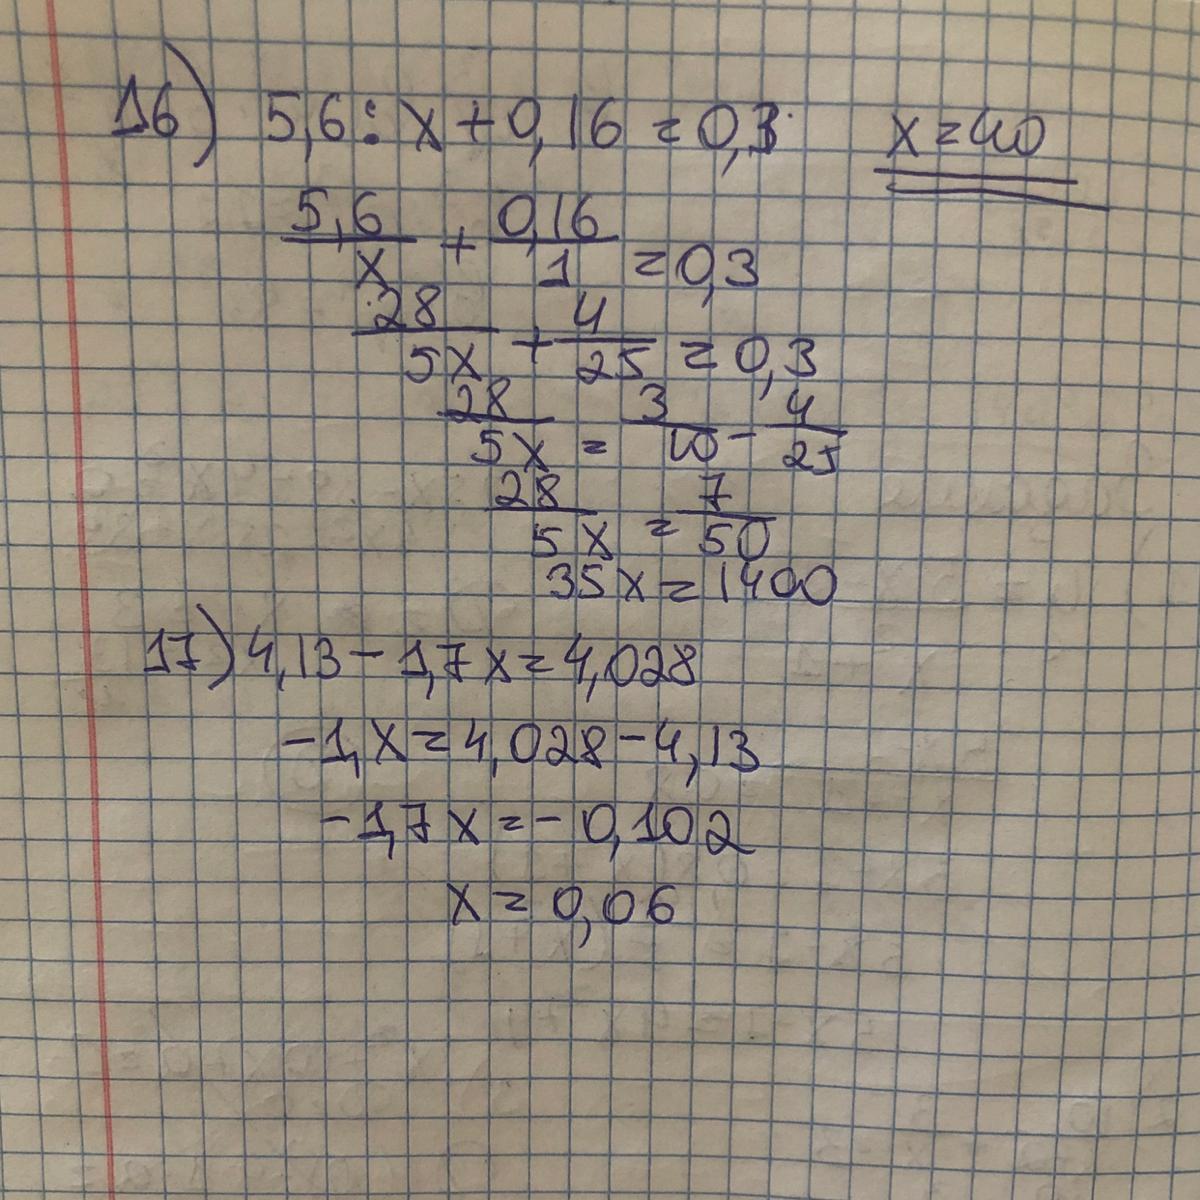 16) 5,6 : x + 0,16 = 0,3 x = 40
5,6/x + 0,16/1 = 0,3
28/5x + 4/25 = 0,3
28/5x = 3/10 - 4/25
28/5x = 7/50
35x = 1400
17) 4,13 - 1,7x = 4,028
-1,x = 4,028 - 4,13
-1,7x = -0,102
x = 0,06